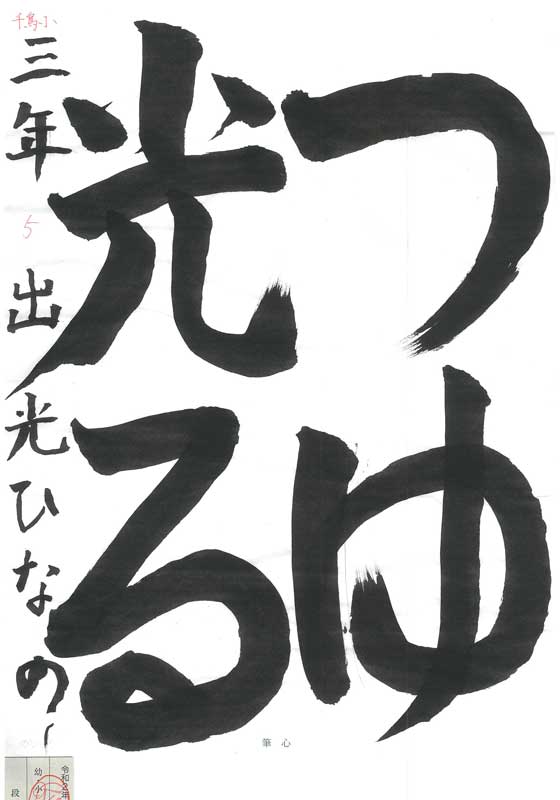 つゆ
光る
千鳥小
三年 5 出光ひなの
心筆
令和2年
幼・小
段